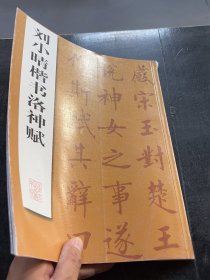 刘小晴楷书洛神赋
感宋玉對楚王
說神女之事遂
作斯賦其辭曰